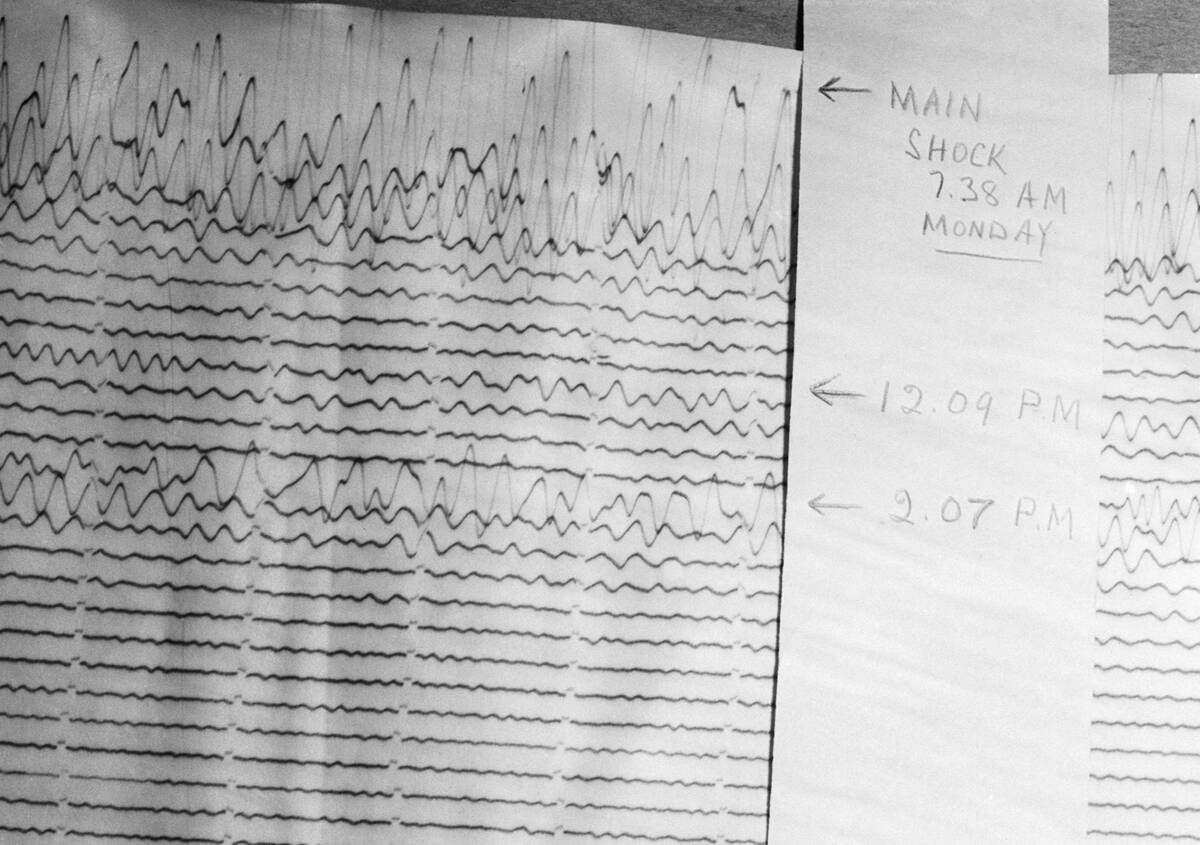 ← MAIN
SHOCK
7.38 AM
MONDAY
← 12.09 P.M
← 2.07 P.M